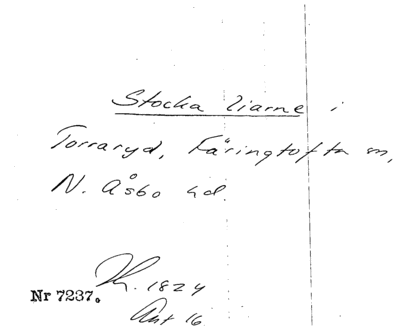 Stocka liarne i
Torraryd, Färingtofta sn,
N. Åsbo hd.
Kh. 1824
Nr 7237.
Akt 16